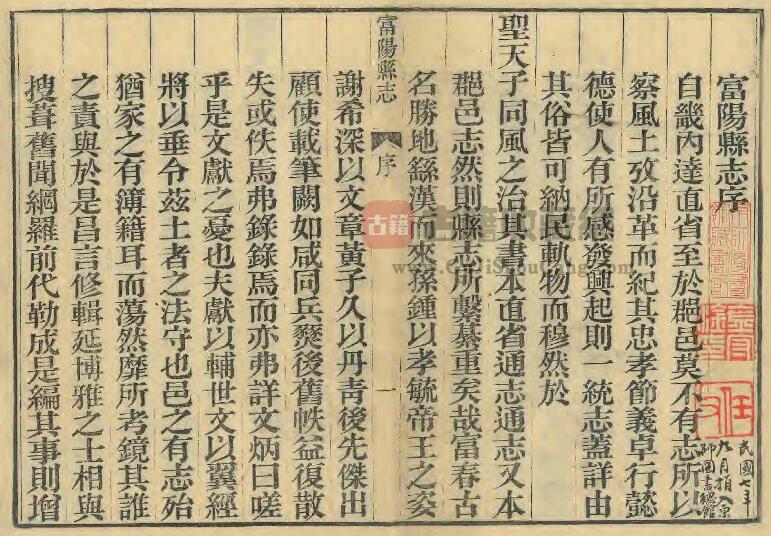 富陽縣志序
自畿內達直省至於郡邑莫不有志所以
察風土攷沿革而紀其忠孝節義卓行懿
德使人有所感發興起則一統志蓋詳由
其俗皆可納民軌物而穆然於
聖天子同風之治其書本直省通志通志又本
郡邑志然則縣志所繫綦重矣哉富春古
名勝地繇漢而來孫鍾以孝毓帝王之姿
富陽縣志
序
一
謝希深以文章黃子久以丹青後先傑出
顧使載筆闕如咸同兵燹後舊帙益復散
失或佚焉弗錄錄焉而亦弗詳文炳曰嗟
乎是文獻之憂也夫獻以輔世文以翼經
將以垂令茲土者之法守也邑之有志殆
猶家之有簿籍耳而蕩然靡所考鏡其誰
之責與於是昌言修輯延博雅之士相與
搜葺舊聞網羅前代勒成是編其事則增
民國七年
九月捐入京
師圖書總館
古籍